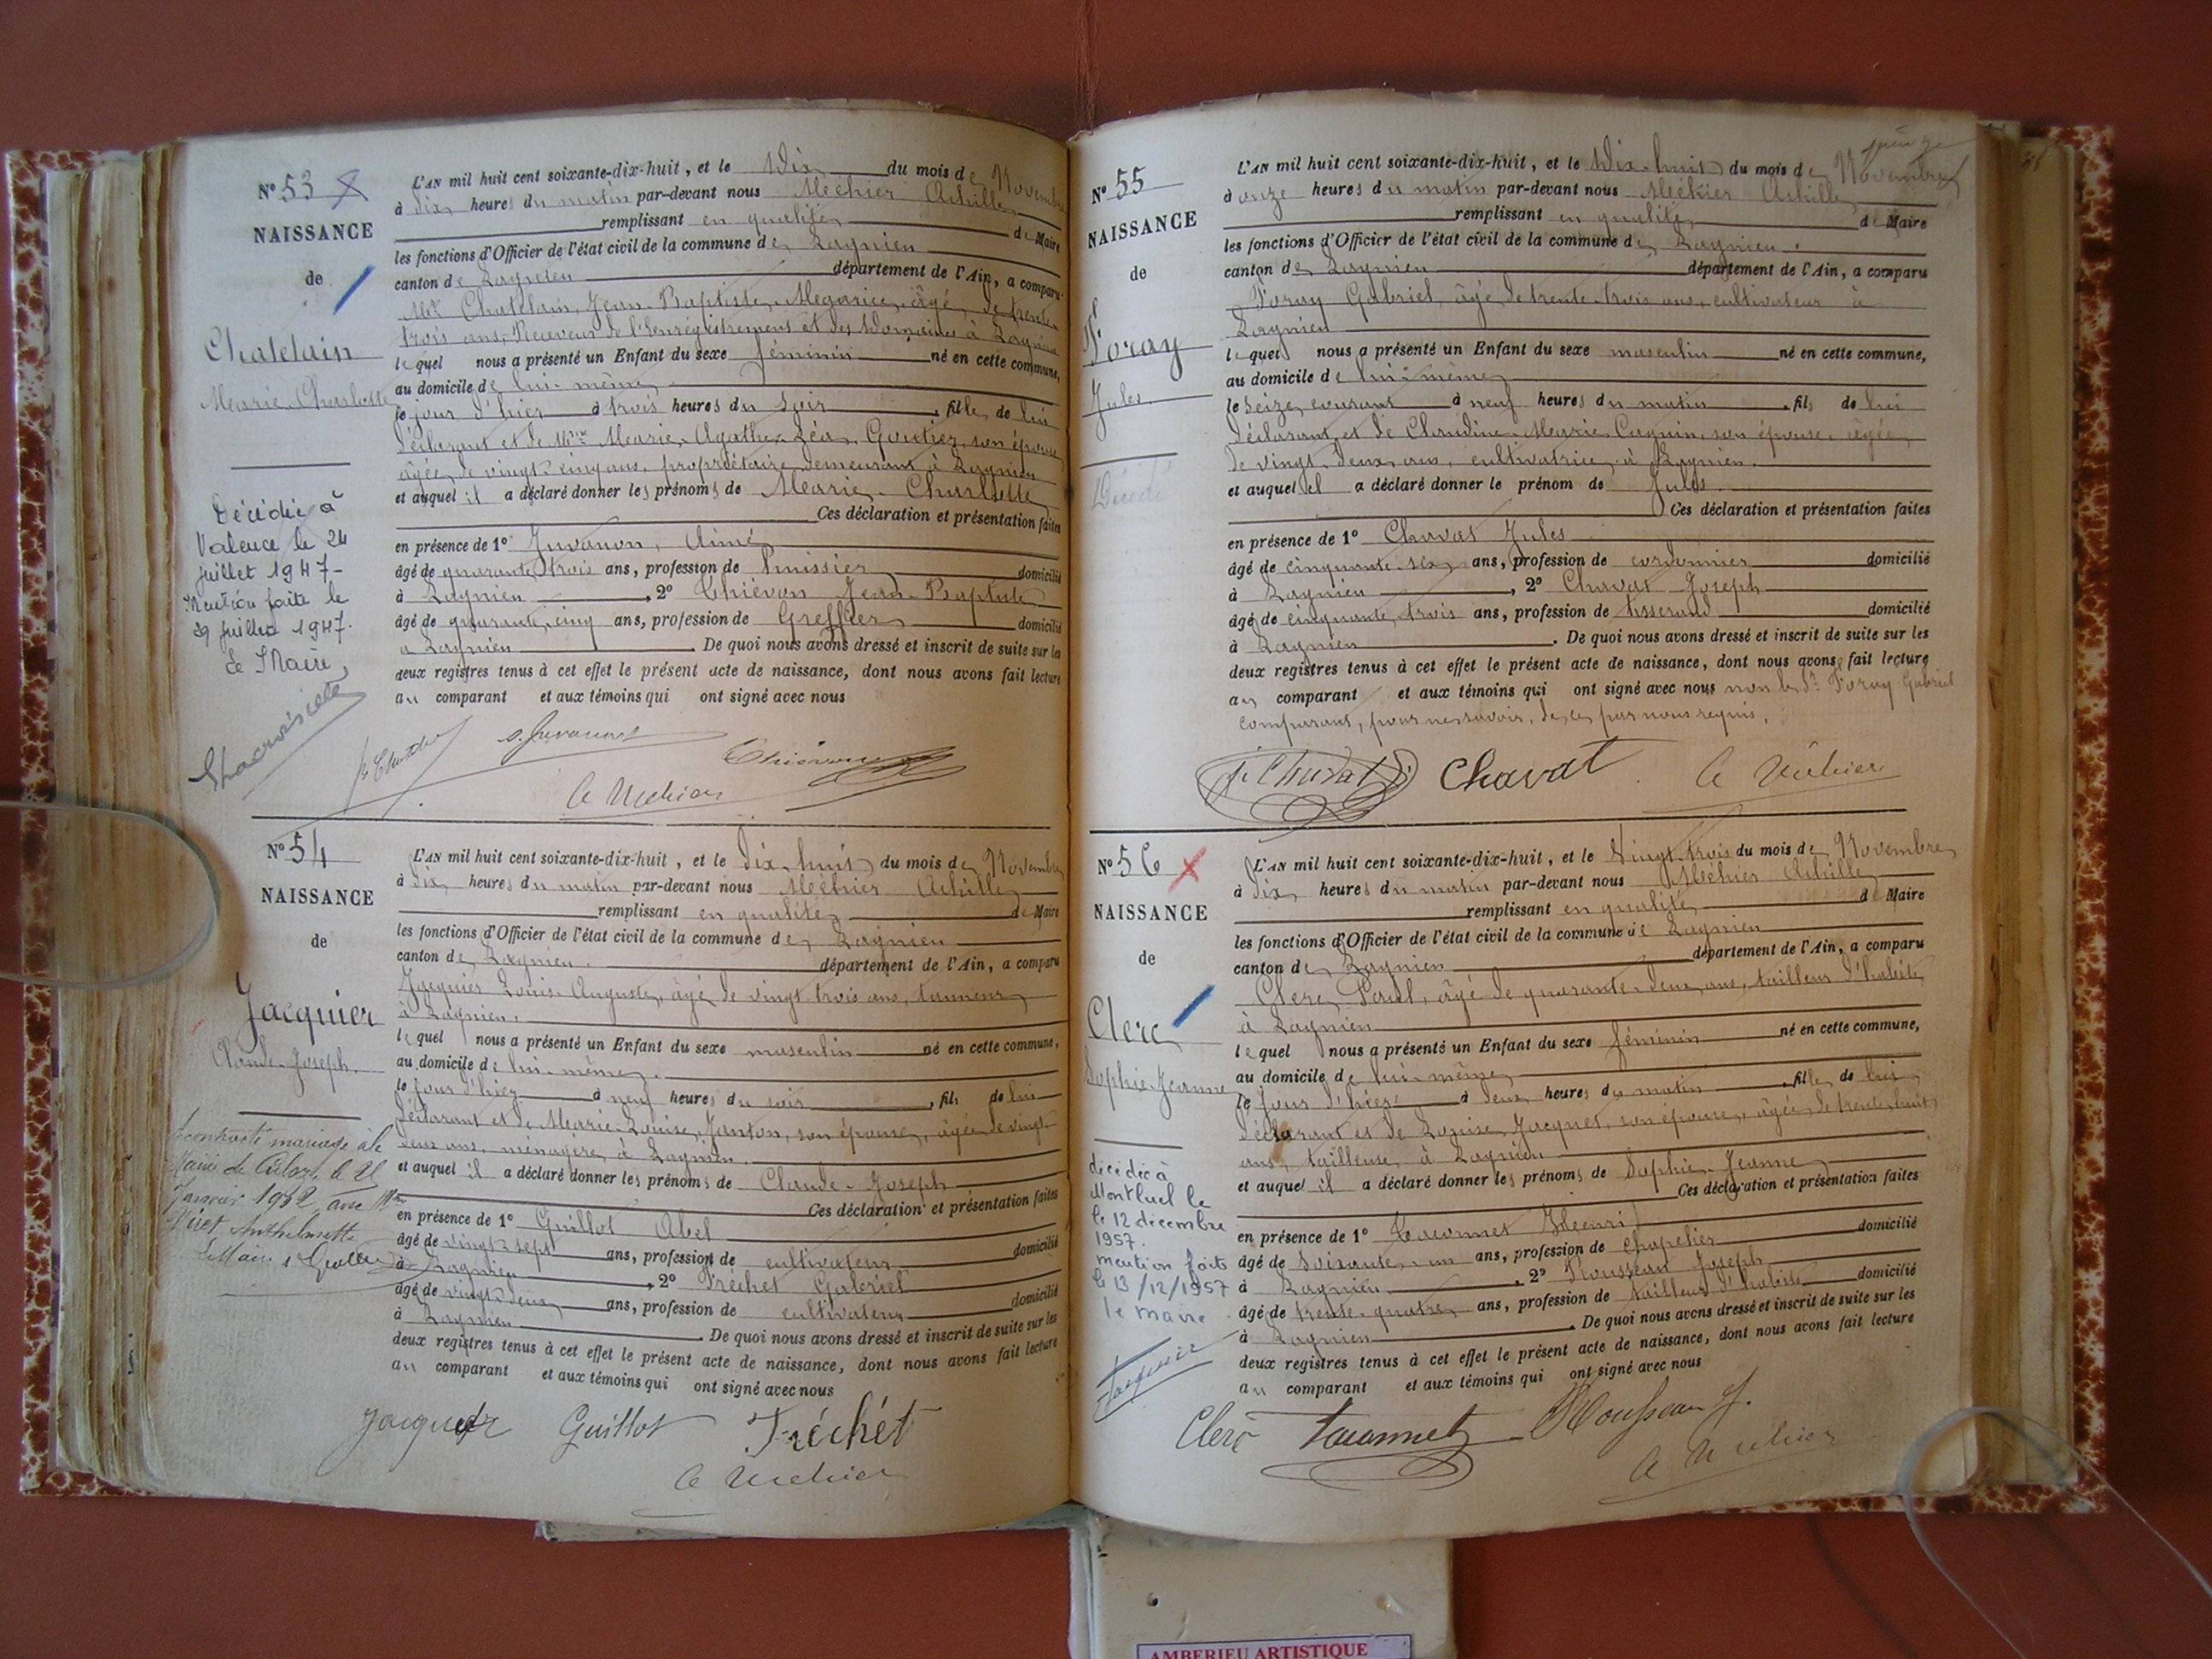 N° 53
NAISSANCE
de
Chatelain
Marie-Charlotte
Décédée à
Valence le 24
juillet 1947-
Mention faite le
29 juillet 1947.
Le Maire,
L'AN mil huit cent soixante-dix-huit, et le Dix du mois de Novembre
à dix heures du matin par-devant nous Méhier Achille
remplissant en qualité de Maire
les fonctions d'Officier de l'état civil de la commune de Lagnieu
canton de Lagnieu département de l'Ain, a comparu
Mr Chatelain, Jean-Baptiste, âgé de trente-
trois ans, Receveur de l'Enregistrement et des Domaines à Lagnieu
lequel nous a présenté un Enfant du sexe féminin né en cette commune,
au domicile de lui-même
le jour d'hier à trois heures du soir, fille de lui
déclarant et de Mme Marie, Agathe, Léa, Goutier, son épouse
âgée de vingt-cinq ans, propriétaire demeurant à Lagnieu
et auquel il a déclaré donner les prénoms de Marie-Charlotte
Ces déclaration et présentation faites
en présence de 1° Juvanon, Aimé
âgé de quarante-trois ans, profession de huissier domicilié
à Lagnieu, 2° Thiévon Jean-Baptiste
âgé de quarante-cinq ans, profession de Greffier domicilié
à Lagnieu. De quoi nous avons dressé et inscrit de suite sur les
deux registres tenus à cet effet le présent acte de naissance, dont nous avons fait lecture
au comparant et aux témoins qui ont signé avec nous
A. Juvanon
Thiévon
A Méhier
N° 54
NAISSANCE
de
Jacquier
Claude-Joseph.
A contracté mariage à la
Mairie de Culoz, le 21
Janvier 1932, avec Mme
Anthelmette
Le Maire
L'AN mil huit cent soixante-dix-huit, et le dix-huit du mois de Novembre
à dix heures du matin par-devant nous Méhier Achille
remplissant en qualité de Maire
les fonctions d'Officier de l'état civil de la commune de Lagnieu
canton de Lagnieu département de l'Ain, a comparu
Jacquier Louis-Auguste, âgé de vingt-trois ans, tanneur
à Lagnieu.
lequel nous a présenté un Enfant du sexe masculin né en cette commune,
au domicile de lui-même.
le jour d'hier à neuf heures du soir, fils de lui
déclarant et de Marie-Louise, Janton, son épouse, âgée de vingt-
deux ans, ménagère à Lagnieu.
et auquel il a déclaré donner les prénoms de Claude-Joseph
Ces déclaration et présentation faites
en présence de 1° Guillot Abel
âgé de vingt-sept ans, profession de cultivateur domicilié
à Lagnieu, 2° Fréchet Gabriel
âgé de vingt-deux ans, profession de cultivateur domicilié
à Lagnieu. De quoi nous avons dressé et inscrit de suite sur les
deux registres tenus à cet effet le présent acte de naissance, dont nous avons fait lecture
au comparant et aux témoins qui ont signé avec nous
Jacquier Guillot Fréchét
A Méhier
N° 55
NAISSANCE
de
Foray
Jules.
Décédé
L'AN mil huit cent soixante-dix-huit, et le Dix-huit du mois de Novembre
à onze heures du matin par-devant nous Méhier Achille
remplissant en qualité de Maire
les fonctions d'Officier de l'état civil de la commune de Lagnieu.
canton de Lagnieu département de l'Ain, a comparu
Foray Gabriel, âgé de trente-trois ans, cultivateur à
Lagnieu
lequel nous a présenté un Enfant du sexe masculin né en cette commune,
au domicile de lui-même
le seize courant à neuf heures du matin, fils de lui
déclarant et de Claudine-Marie Cagnin, son épouse, âgée
de vingt-deux ans, cultivatrice à Lagnieu.
et auquel il a déclaré donner le prénom de Jules
Ces déclaration et présentation faites
en présence de 1° Chavat Jules
âgé de cinquante-six ans, profession de cordonnier domicilié
à Lagnieu, 2° Chavat Joseph
âgé de cinquante-trois ans, profession de tisserand domicilié
à Lagnieu. De quoi nous avons dressé et inscrit de suite sur les
deux registres tenus à cet effet le présent acte de naissance, dont nous avons fait lecture
au comparant et aux témoins qui ont signé avec nous non le Sr Foray Gabriel
comparant, pour ne savoir, de ce par nous requis.
J. Chavat Chavat A Méhier
N° 56
NAISSANCE
de
Clerc
Sophie-Jeanne
décédée à
Montluel le
le 12 décembre
1957.
mention faite
le 13/12/1957
le maire
L'AN mil huit cent soixante-dix-huit, et le Vingt-trois du mois de Novembre
à dix heures du matin par-devant nous Méhier Achille
remplissant en qualité de Maire
les fonctions d'Officier de l'état civil de la commune de Lagnieu
canton de Lagnieu département de l'Ain, a comparu
Clerc, Paul, âgé de quarante-deux ans, tailleur d'habits
à Lagnieu
lequel nous a présenté un Enfant du sexe féminin né en cette commune,
au domicile de lui-même
le jour d'hier à deux heures du matin, fille de lui
déclarant et de Louise Jacquet, son épouse, âgée de trente-huit
ans, tailleuse à Lagnieu
et auquel il a déclaré donner les prénoms de Sophie-Jeanne
Ces déclaration et présentation faites
en présence de 1° Tavonnet Henri
âgé de soixante-un ans, profession de chapelier domicilié
à Lagnieu, 2° Rousseau Joseph
âgé de trente-quatre ans, profession de tailleur d'habits domicilié
à Lagnieu. De quoi nous avons dressé et inscrit de suite sur les
deux registres tenus à cet effet le présent acte de naissance, dont nous avons fait lecture
au comparant et aux témoins qui ont signé avec nous
Clerc Tavonnet Rousseau J.
A Méhier
AMBERIEU ARTISTIQUE